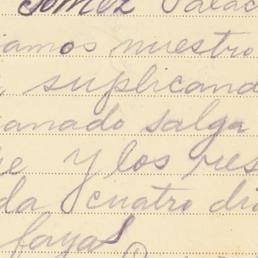 Gomez Palac
iamos nuestro
suplicand
anado salga
e y los res
da cuatro di
fayas